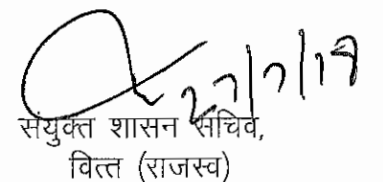 27/7/19
संयुक्त शासन सचिव,
वित्त (राजस्व)